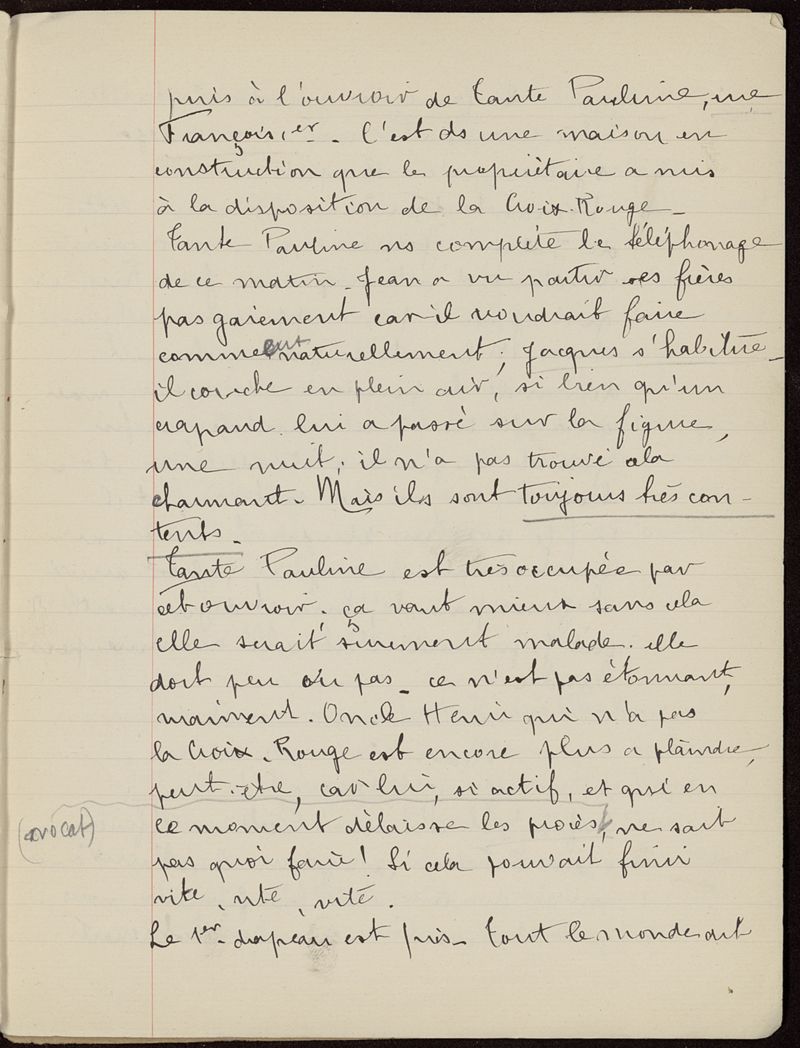 puis à l'ouvroir de Tante Pauline, rue
François 1er. C'est ds une maison en
construction que le propriétaire a mis
à la disposition de la Croix-Rouge -
Tante Pauline ns complète le téléphonage
de ce matin. Jean a vu partir ses frères
pas gaiement car il voudrait faire
comme eux naturellement ; Jacques s'habitue -
il couche en plein air, si bien qu'un
crapaud lui a passé sur la figure,
une nuit ; il n'a pas trouvé cela
charmant. Mais ils sont toujours très con-
tents.
Tante Pauline est très occupée par
cet ouvroir ; ça vaut mieux sans cela
elle serait sûrement malade. elle
dort peu ou pas - ce n'est pas étonnant,
vraiment. Oncle Henri qui n'a pas
la Croix-Rouge est encore plus à plaindre,
peut-être, car lui, si actif, et qui en
(avocat) ce moment délaisse les procès, ne sait
pas quoi faire ! Si cela pouvait finir
vite, vite, vite.
Le 1er drapeau est pris - tout le monde dit